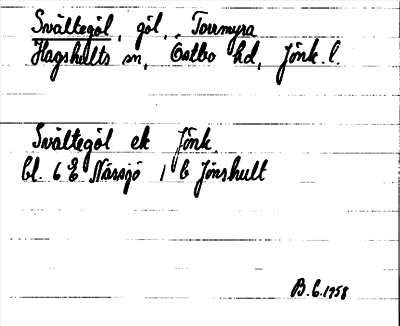 Svältegöl, göl, Torrmyra
Hagshults sn, Östbo hd, Jönk. l.
Svältegöl ek Jönk.
bl. 6 E Nässjö 1 b Jönshult
B.E. 1958